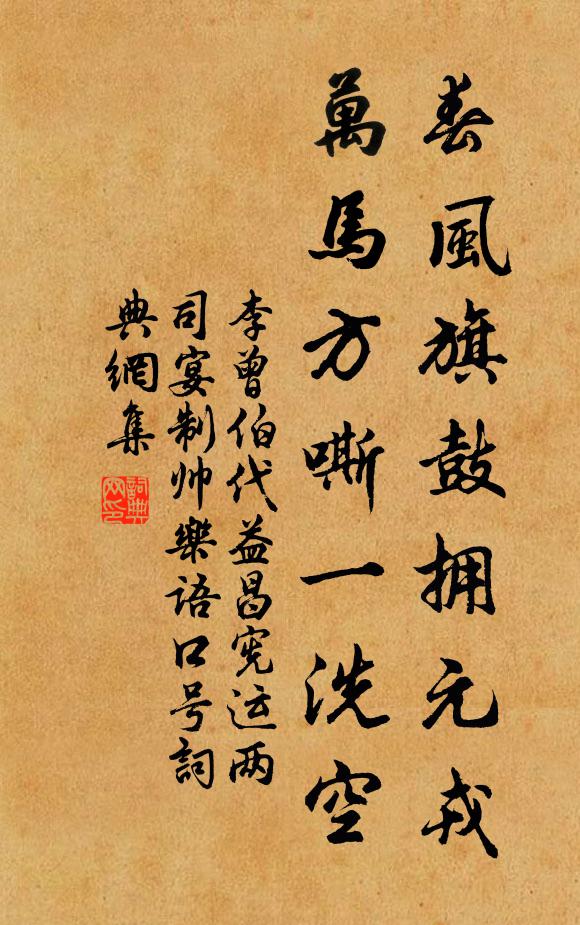 春風旗鼓拥元戎
萬馬方嘶一洗空
李曾伯代益昌宪运两
司宴制帅樂语口号詞
典網集
詞典
网印